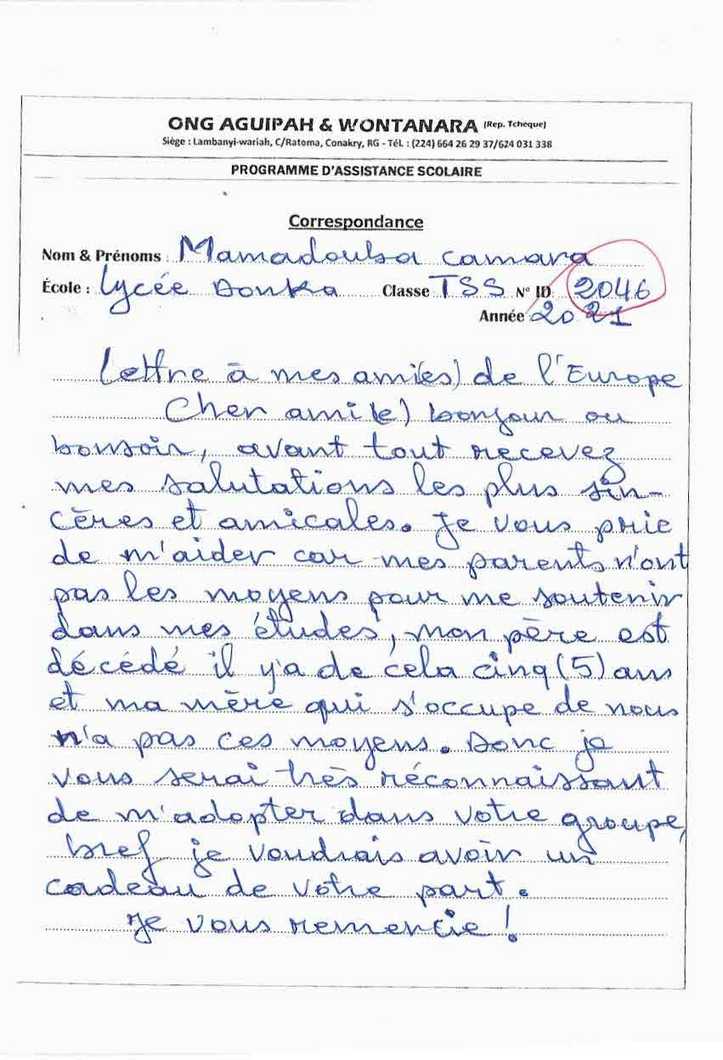 ONG AGUIPAH & WONTANARA (Rep. Tcheque)
Siège : Lambanyi-wariah, C/Ratoma, Conakry, RG - Tél. : (224) 664 26 29 37/624 031 338
PROGRAMME D'ASSISTANCE SCOLAIRE
Correspondance
Nom & Prénoms Mamadouba camara
École : Lycée Donka Classe TSS N° ID 2046
Année 2021
Lettre à mes ami(es) de l'Europe
Cher ami(e) bonjour ou
bonsoir, avant tout recevez
mes salutations les plus sin-
cères et amicales. Je vous prie
de m'aider car mes parents n'ont
pas les moyens pour me soutenir
dans mes études, mon père est
décédé il y'a de cela cinq (5) ans
et ma mère qui s'occupe de nous
n'a pas ces moyens. Donc je
vous serai très réconnaissant
de m'adopter dans votre groupe,
bref je voudrais avoir un
cadeau de votre part.
Je vous remercie !